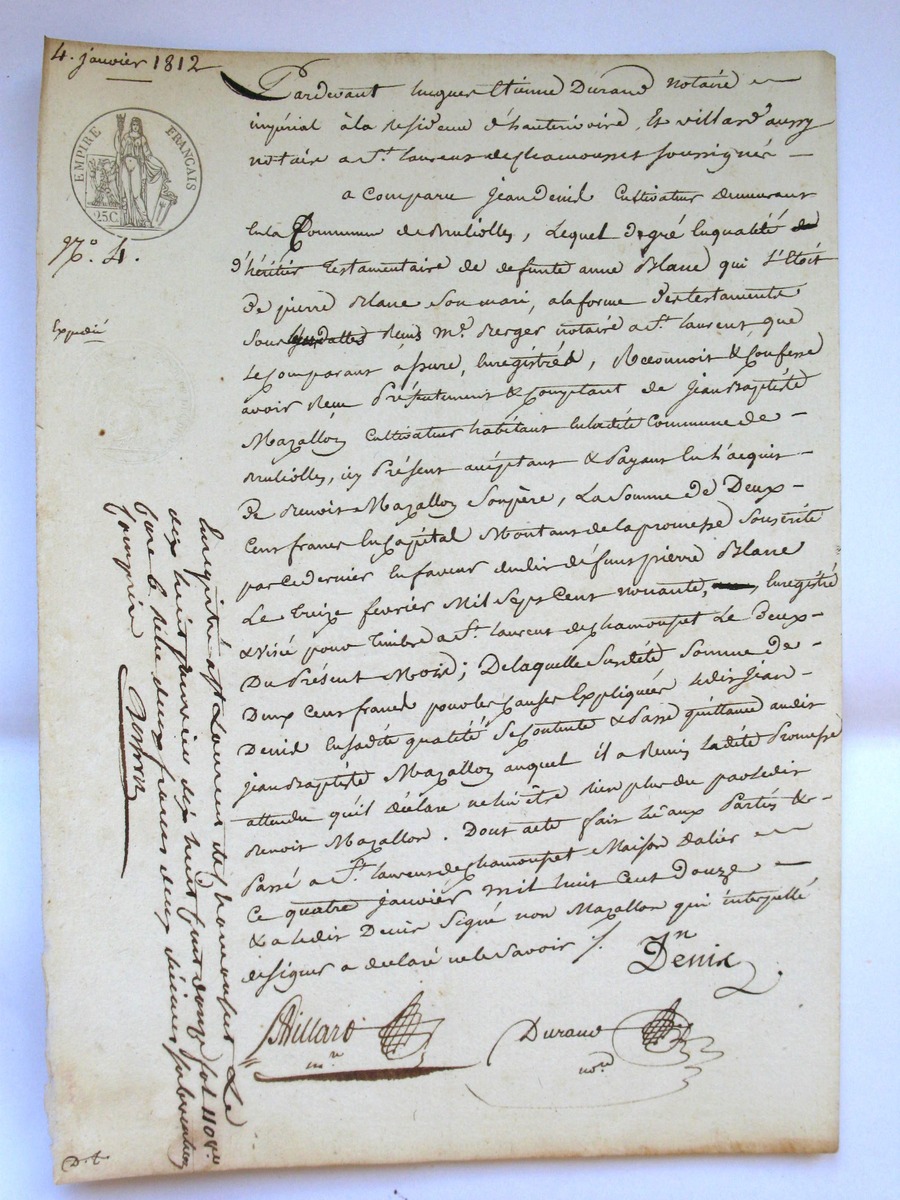 4. janvier 1812
EMPIRE FRANÇAIS
25.C
N.º 4.
Expédié
Pardevant Jacques Etienne Durand Notaire
impérial à la residence d'hauterivoire, Et Villard aussy
notaire a S.t laurent de chamousset soussignés
a Comparu Jean Denis Cultivateur demeurant
En la Commune de Brulioles, Lequel de gré En qualité
d'héritier Testamentaire de defunte anne Blanc qui L'Etoit
de pierre Blanc Son mari, a la forme des testaments
Sous Reçus M.e Berger notaire a S.t laurent, que
Le Comparant assure, Enregistrés, Reconnoit & Confesse
avoir Reçu Présentement & Comptant de Jean Baptiste
Mazallon Cultivateur habitant En la dite Commune de
Brulioles, icy Présent acceptant & Payant En L'acquit
de Benoit Mazallon Son père, La Somme de Deux
Cent francs En Capital Montant de la promesse Souscrite
par Ce dernier En faveur dudit défunt pierre Blanc
Le treize février Mil Sept Cent nonante, Enregistré
& Visé pour Timbre a S.t laurent de chamousset Le Deux
Du Présent Mois; De laquelle Susdite Somme de
Deux Cent francs pour les Causes Expliquées Ledit Jean
Denis En sadite qualité Se Contente & Passe quittance audit
Jean Baptiste Mazallon auquel il a Remis Ladite Promesse
attendu qu'il déclare ne lui être rien plus du par Ledit
Benoit Mazallon. Dont acte fait lû aux Parties &
Passé a S.t laurent de chamousset Maison dalier
Ce quatre janvier mil huit Cent Douze
& a Ledit Denis Signé non Mazallon qui interpellé
de signer a declaré ne le Savoir /.
Denis
Villard
n.re
Durand
no.re
Enregistré a S.t Laurent de chamousset Le
dix huit janvier dix huit cent douze fol 110 r.o
Case 6. reçu deux francs deux décimes subvention
Comprise
D.t